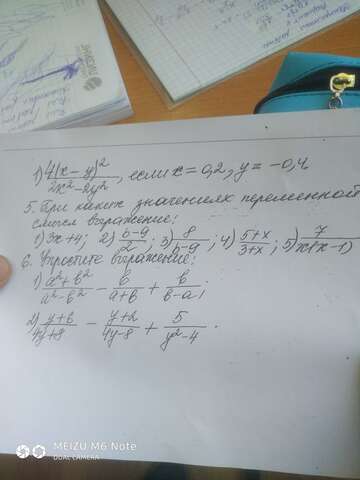 1) 4(x-y)² / 2x²-2y², если x=0,2, y=-0,4
5. При каких значениях переменной
смысл выражение:
1) 3x+4; 2) b-9 / 2; 3) 8 / b-9; 4) 5+x / 3+x; 5) 7 / x(x-1)
6. Упростите выражение:
1) a²+b² / a²-b² - b / a+b + b / b-a;
2) y+6 / 4y+8 - y+2 / 4y-8 + 5 / y²-4.
MEIZU M6 Note
DUAL CAMERA